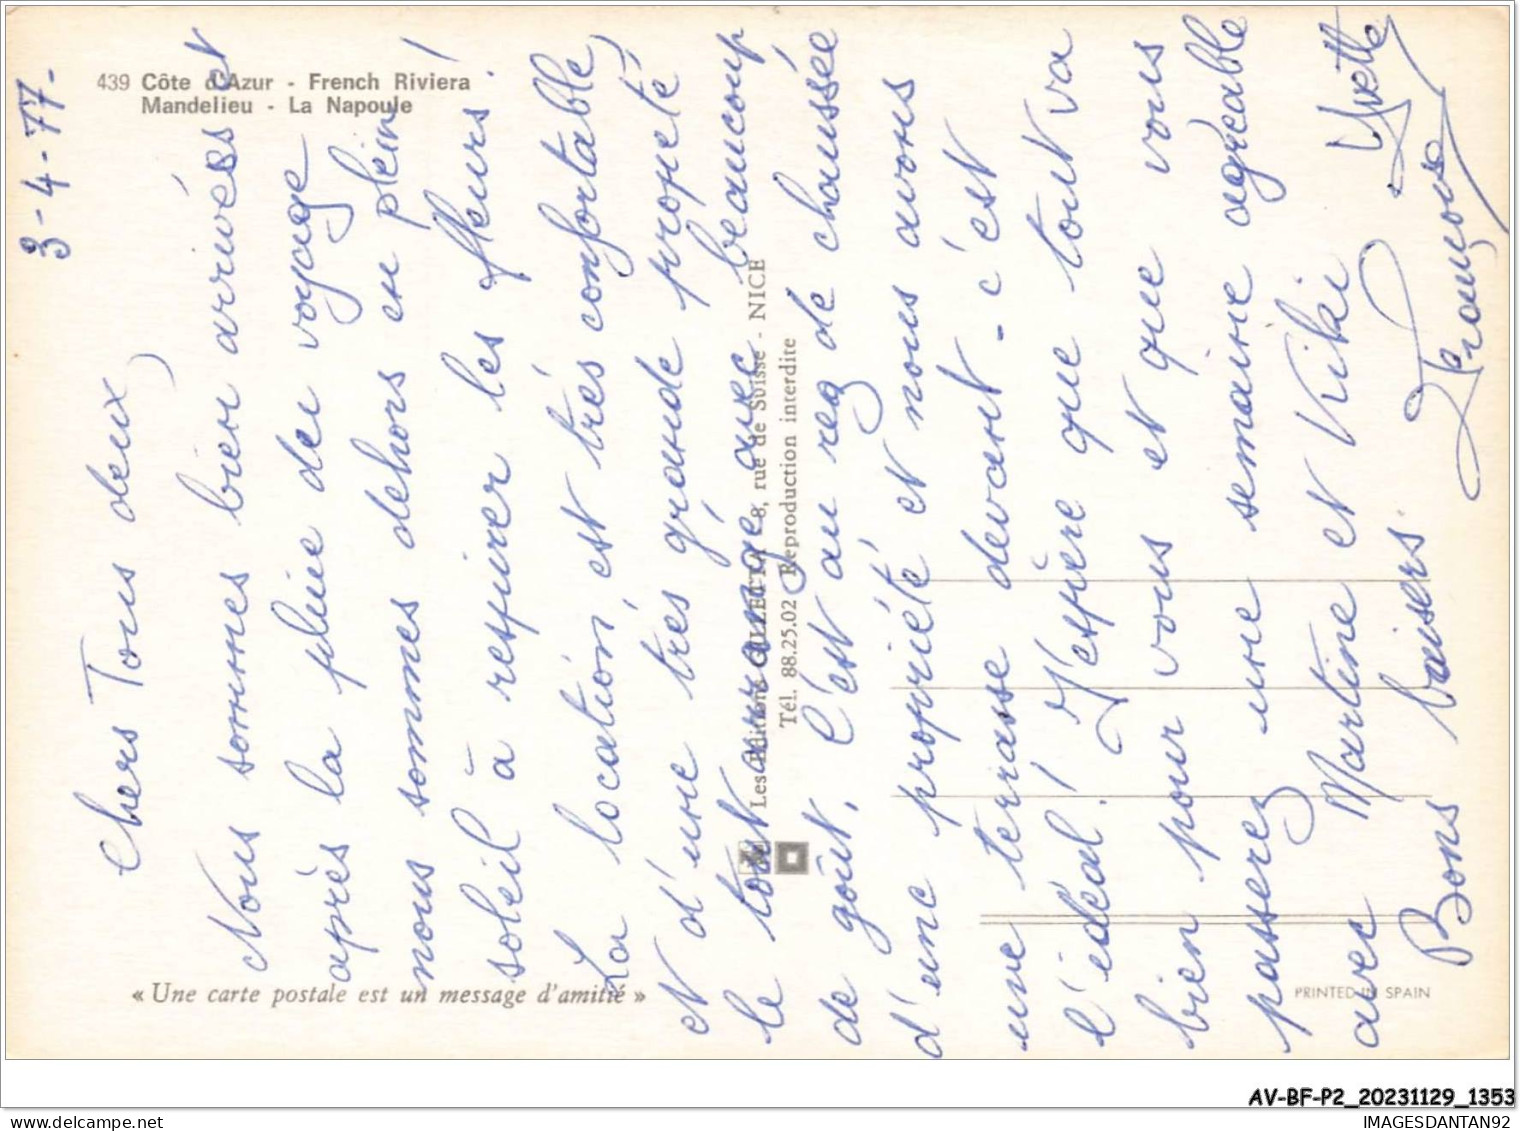 439 Côte d'Azur - French Riviera
Mandelieu - La Napoule
3-4-77-
Chers Tous deux,
Nous sommes bien arrivés et
après la pluie du voyage
nous sommes dehors en plein
soleil à respirer les fleurs!
La location, est très confortable,
et d'une très grande propreté
le tout arrangé avec beaucoup
de goût, c'est au rez de chaussée
d'une propriété et nous avons
une terrasse devant - c'est
l'idéal! J'espère que tout va
bien pour vous et que vous
passerez une semaine agréable
avec Martine et Kiki
Bons baisers.
Yvette
François
Les Editions GILLETTA 8, rue de Suisse - NICE
Tél. 88.25.02 Reproduction interdite
« Une carte postale est un message d'amitié »
PRINTED IN SPAIN
AV-BF-P2_20231129_1353
IMAGESDANTAN92